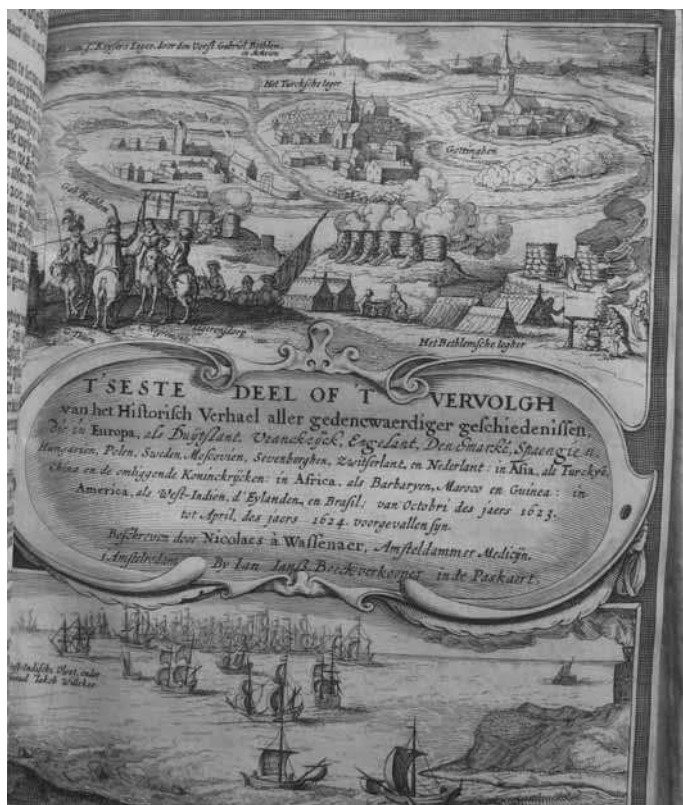 Keysers Leger, door den Vorst Gabriel Bethlem
Het Turcksche leger
Gottinghen
Gab: Bethlen
Thurn
Het Bethlemsche legher
T'SESTE DEEL OF 'T VERVOLGH
van het Historisch Verhael aller gedencwaerdiger geschiedenissen,
die in Europa, als Duijtslant, Vranckrijck, Engelant, Denemarcke, Spaengien,
Hungarien, Polen, Sweden, Moscovien, Sevenborghen, Zwitserlant, en Nederlant: in Asia, als Turckyë,
China en de omliggende Koninckrijcken: in Africa, als Barbaryen, Maroco en Guinea: in
America, als West-Indien, d'Eylanden, en Brasil: van Octobri des jaers 1623.
tot April, des jaers 1624. voorgevallen syn.
Beschreven door Nicolaes à Wassenaer, Amsteldammer Medicijn.
t'Amstelredam By Ian Ianß. Boeckverkooper in de Paskaert.
Indische Vloot, onder
Iakob Willekes